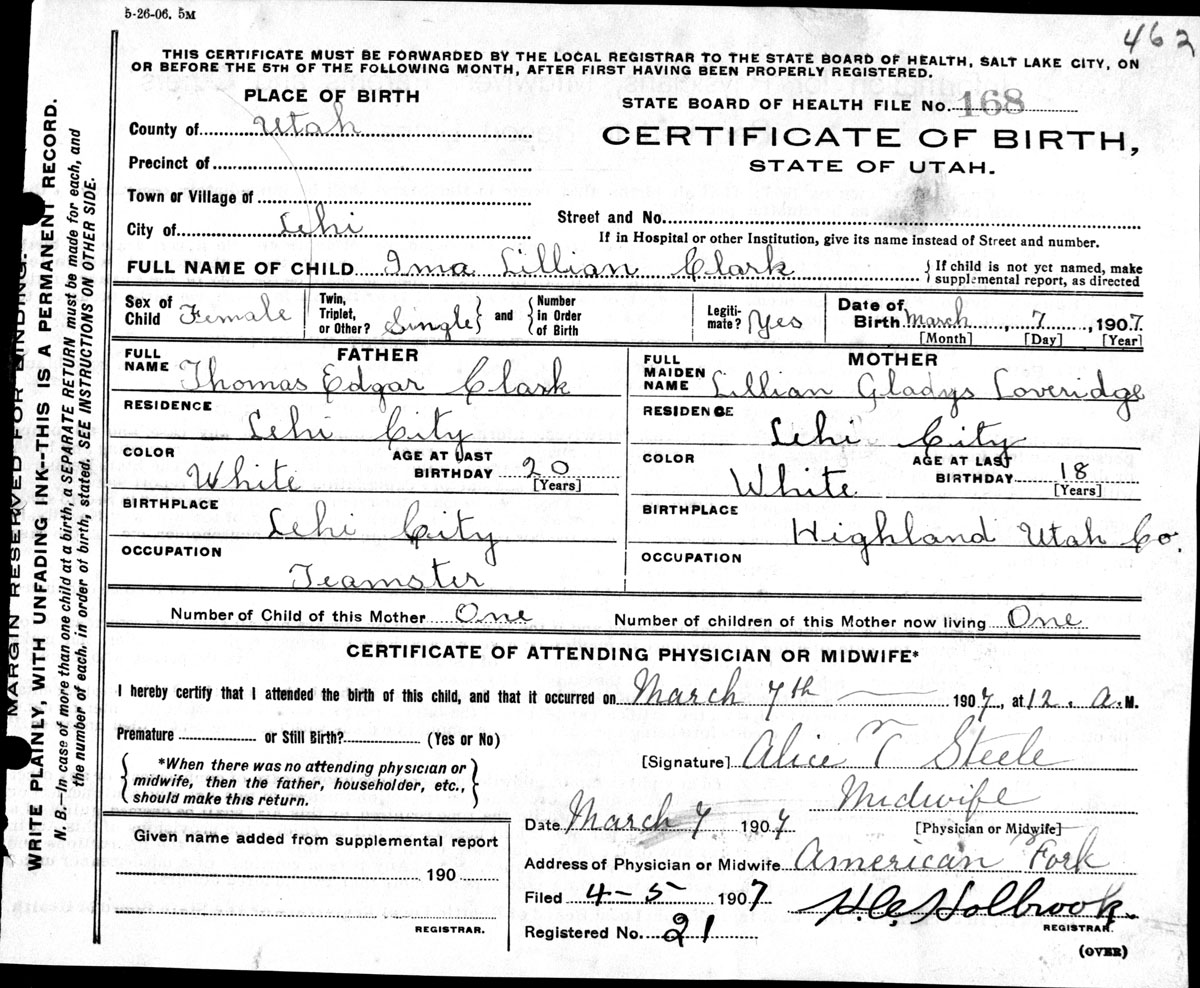 5-26-06. 5M
462
THIS CERTIFICATE MUST BE FORWARDED BY THE LOCAL REGISTRAR TO THE STATE BOARD OF HEALTH, SALT LAKE CITY, ON
OR BEFORE THE 5TH OF THE FOLLOWING MONTH, AFTER FIRST HAVING BEEN PROPERLY REGISTERED.
PLACE OF BIRTH
STATE BOARD OF HEALTH FILE No. 168
County of Utah
CERTIFICATE OF BIRTH,
Precinct of
STATE OF UTAH.
Town or Village of
Street and No.
City of Lehi
If in Hospital or other Institution, give its name instead of Street and number.
FULL NAME OF CHILD Ima Lillian Clark
{ If child is not yet named, make
supplemental report, as directed
Sex of Child Female
Twin, Triplet, or Other? Single } and { Number in Order of Birth
Legiti-mate? Yes
Date of Birth March, 7, 1907
[Month] [Day] [Year]
FATHER
FULL NAME Thomas Edgar Clark
MOTHER
FULL MAIDEN NAME Lillian Gladys Loveridge
RESIDENCE Lehi City
RESIDENCE Lehi City
COLOR White
AGE AT LAST BIRTHDAY 20 [Years]
COLOR White
AGE AT LAST BIRTHDAY 18 [Years]
BIRTHPLACE Lehi City
BIRTHPLACE Highland Utah Co.
OCCUPATION Teamster
OCCUPATION
Number of Child of this Mother One
Number of children of this Mother now living One
CERTIFICATE OF ATTENDING PHYSICIAN OR MIDWIFE*
I hereby certify that I attended the birth of this child, and that it occurred on March 7th 1907, at 12. a.M.
Premature or Still Birth? (Yes or No)
[Signature] Alice T Steele
{ *When there was no attending physician or
midwife, then the father, householder, etc.,
should make this return. }
Midwife
Date March 7 1907
[Physician or Midwife]
Given name added from supplemental report
Address of Physician or Midwife American Fork
190
Filed 4-5 1907 H.C. Holbrook
REGISTRAR.
REGISTRAR.
Registered No. 21
(OVER)
MARGIN RESERVED FOR BINDING.
WRITE PLAINLY, WITH UNFADING INK--THIS IS A PERMANENT RECORD.
N. B.—In case of more than one child at a birth, a SEPARATE RETURN must be made for each, and
the number of each, in order of birth, stated. SEE INSTRUCTIONS ON OTHER SIDE.